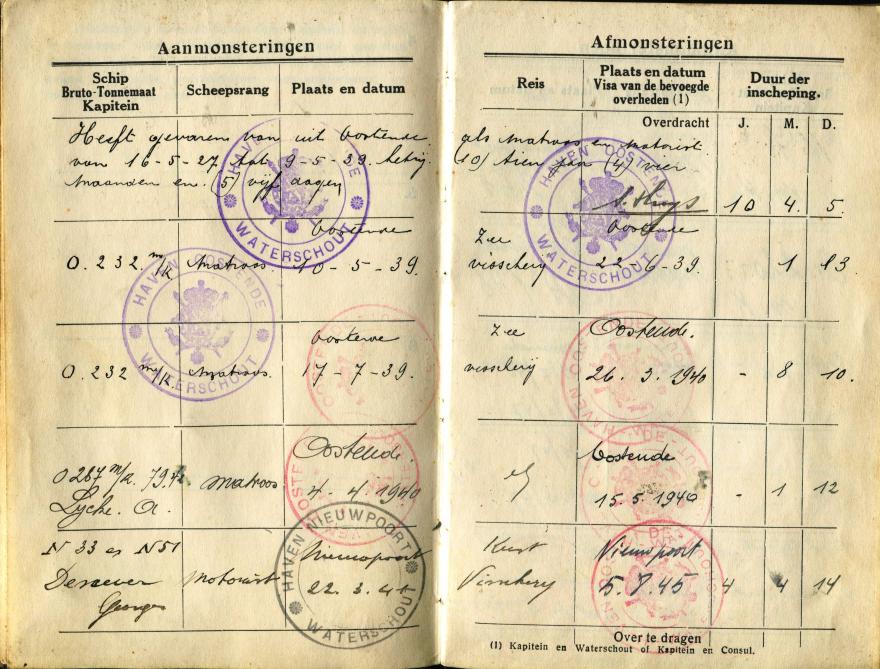 Aanmonsteringen
Schip
Bruto-Tonnemaat
Kapitein
Scheepsrang
Plaats en datum
Heeft gevaren van uit Oostende
van 16-5-27 tot 9-5-39. hetzij
maanden en (5) vijf dagen
HAVEN OOSTENDE
WATERSCHOUT
O. 232. m/k
Matroos
Oostende
10-5-39.
HAVEN OOSTENDE
WATERSCHOUT
O. 232 m/k.
Matroos.
Oostende
17-7-39.
O 287 m/k. 79.
Lycke. A.
Matroos
Oostende
4. 4. 1940
N 33 en N51
Georges
Motorist
Nieuwpoort
HAVEN NIEUWPOORT
WATERSCHOUT
Afmonsteringen
Reis
Plaats en datum
Visa van de bevoegde
overheden (1)
Duur der
inscheping.
Overdracht
J. M. D.
als matroos en motorist
(10) tien jaar (4) vier
10 4. 5.
HAVEN OOSTENDE
WATERSCHOUT
Zee
visscherij
Oostende
22-6-39.
1 13
Zee
visscherij
Oostende.
26. 3. 1940
- 8 10.
Oostende
15.5.1940
- 1 12
Kust
Visscherij
Nieuwpoort
5.7.45
4 4 14
Over te dragen
(1) Kapitein en Waterschout of Kapitein en Consul.